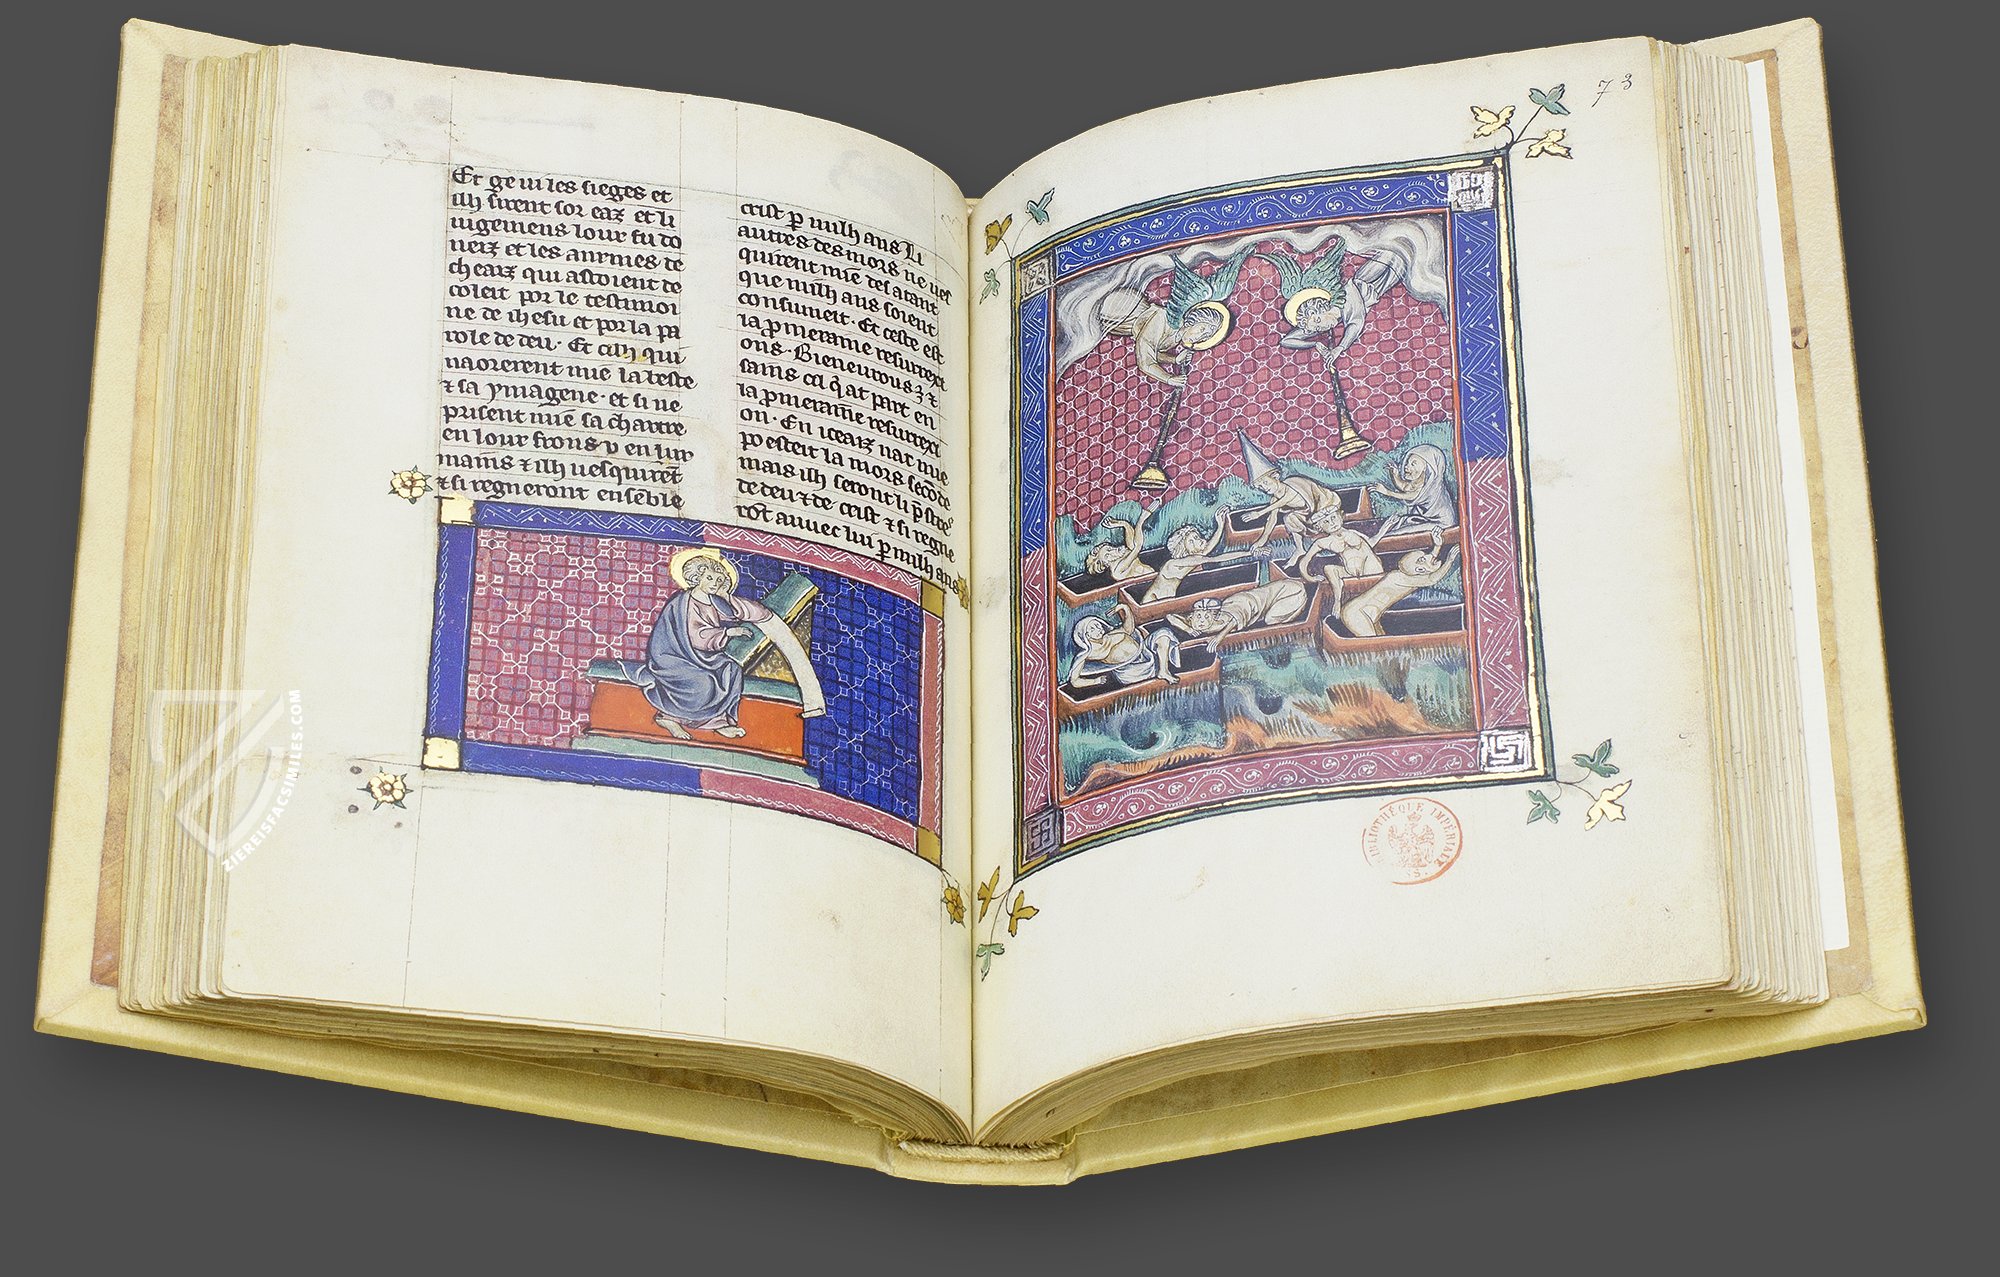 Et ge ui les sieges et
ilh sirent sor eaz et li
iugemens lour fu do
neiz et les anrmes de
cheaz qui astoient de
coleit por le testimoi
ne de ihesu et por la pa
role de deu · Et cilh qui
naorerent mie la beste
⁊ sa ymagene · et si ne
prisent mie sa chartre
en lour frons v en lur
mains ⁊ ilh uesquirēt
⁊ si regneront ensēble
crist p milh ans Li
autres des mors ne ues
quirent mie des atant
que milh ans soient
consumeit · Et ceste est
la pmeraine resurrexi
ons · Bieneurous ⁊
sains cil q̄ at part en
la pmeraine resurrexi
on · En iceaz nat mie
poesteit la mors secōde
mais ilh seront li pstre
de deu ⁊ de crist ⁊ si regne
rōt auuec lui p milh ans
73
BIBLIOTHÉQUE IMPÉRIALE
MSS.
ZIEREISFACSIMILES.COM